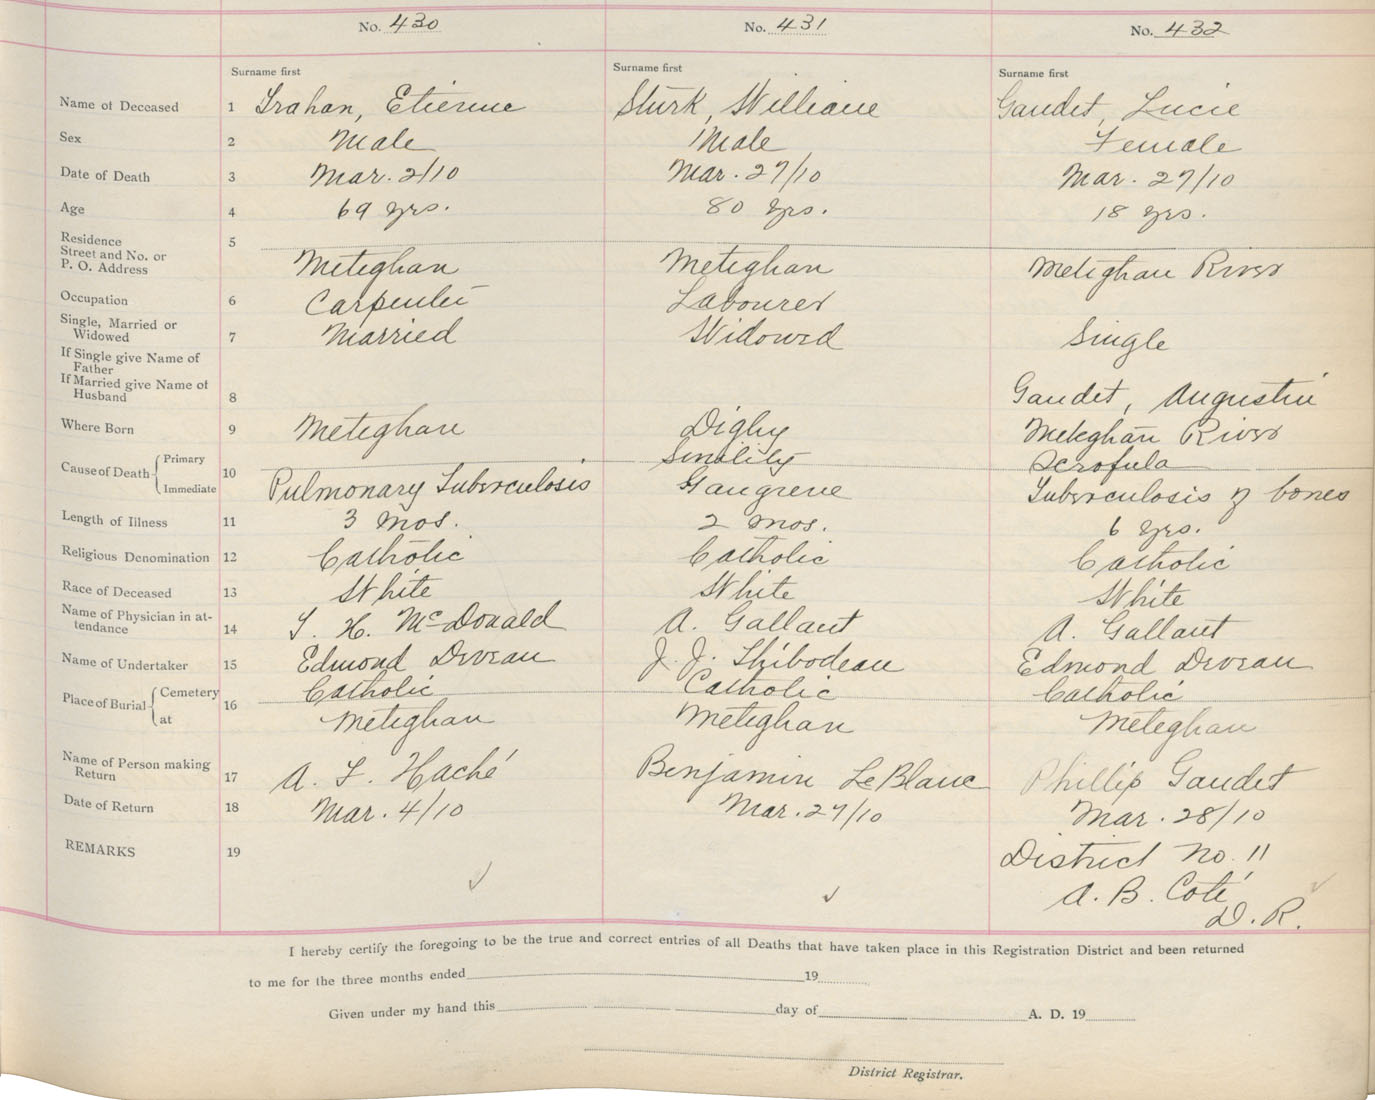 No. 430 No. 431 No. 432
Surname first Surname first Surname first
Name of Deceased 1 Trahan, Etienne Sturk, William Gaudet, Lucie
Sex 2 Male Male Female
Date of Death 3 Mar. 2/10 Mar. 27/10 Mar. 27/10
Age 4 69 yrs. 80 yrs. 18 yrs.
Residence 5
Street and No. or
P. O. Address Meteghan Meteghan Meteghan River
Occupation 6 Carpenter Labourer
Single, Married or
Widowed 7 Married Widowed Single
If Single give Name of
Father
If Married give Name of
Husband 8 Gaudet, Augustin
Where Born 9 Meteghan Digby Meteghan River
Cause of Death Primary 10 Senility Scrofula
Immediate Pulmonary Tuberculosis Gangrene Tuberculosis of bones
Length of Illness 11 3 mos. 2 mos. 6 yrs.
Religious Denomination 12 Catholic Catholic Catholic
Race of Deceased 13 White White White
Name of Physician in at-
tendance 14 T. H. McDonald A. Gallant A. Gallant
Name of Undertaker 15 Edmond Deveau J. J. Thibodeau Edmond Deveau
Place of Burial Cemetery 16 Catholic Catholic Catholic
at Meteghan Meteghan Meteghan
Name of Person making
Return 17 A. L. Haché Benjamin LeBlanc Phillip Gaudet
Date of Return 18 Mar. 4/10 Mar. 27/10 Mar. 28/10
REMARKS 19 District No. 11
A. B. Coté
D. R.
I hereby certify the foregoing to be the true and correct entries of all Deaths that have taken place in this Registration District and been returned
to me for the three months ended 19
Given under my hand this day of A. D. 19
District Registrar.